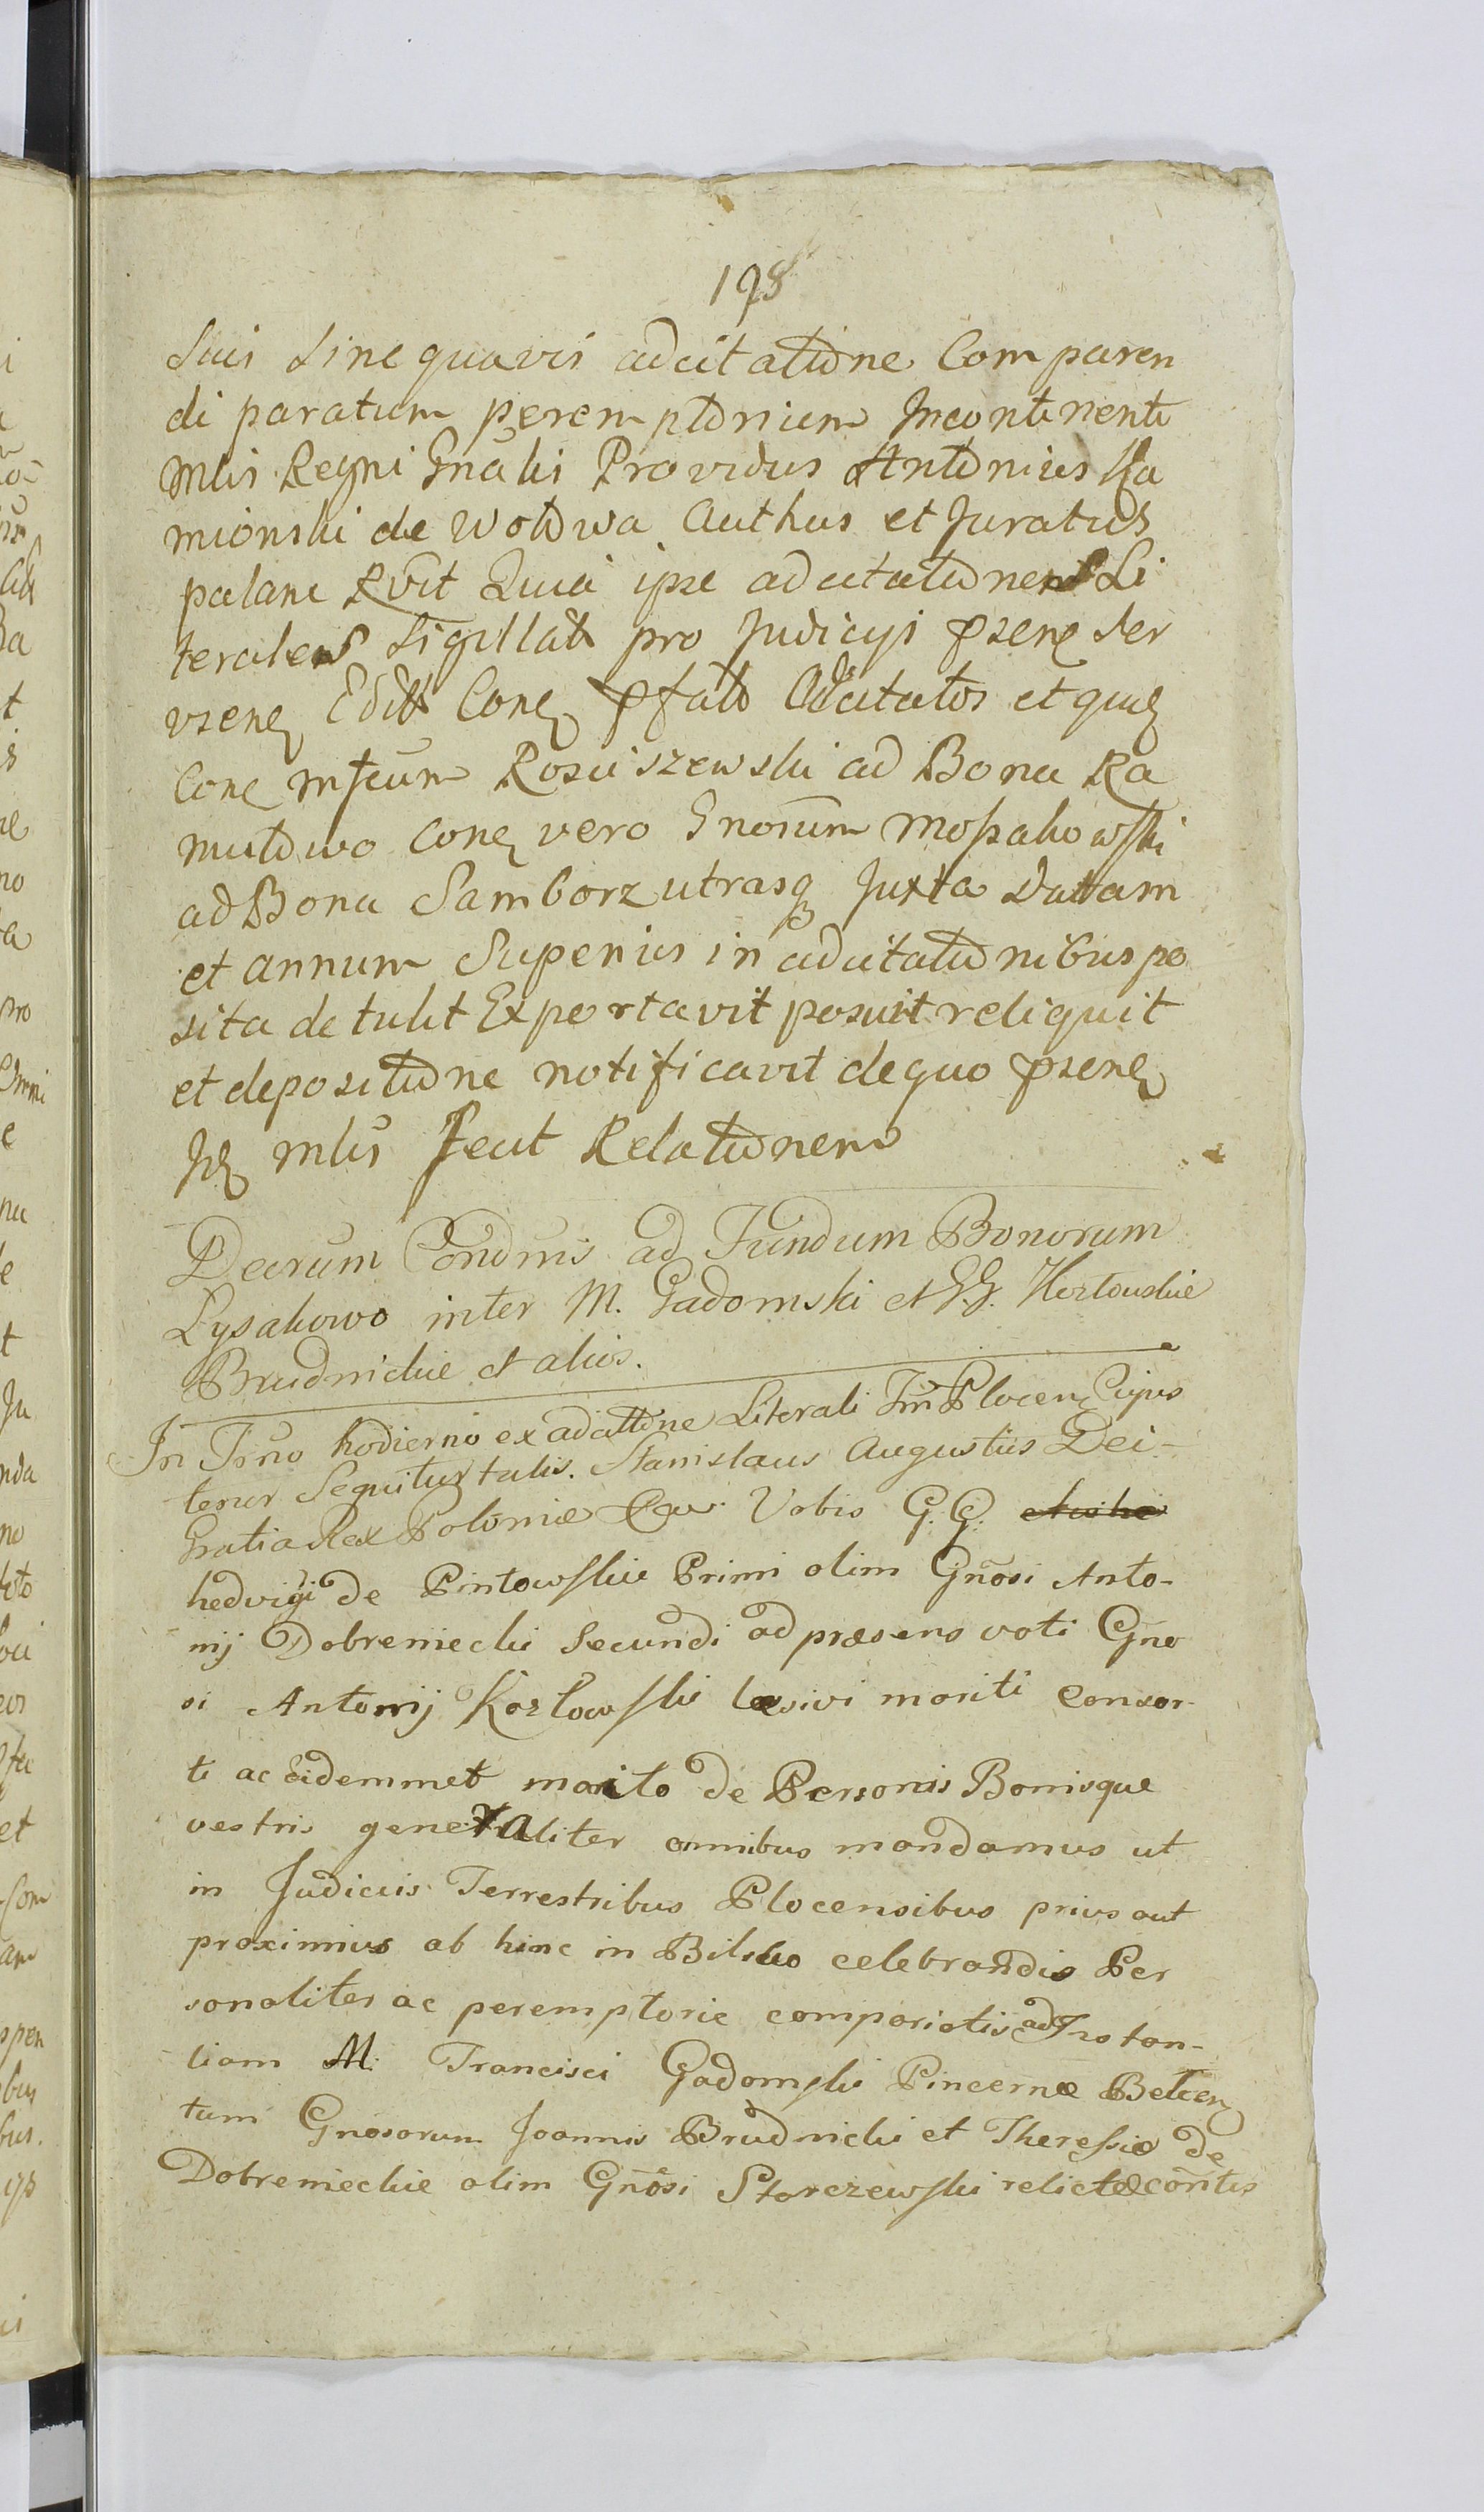 198
Suis Sine quavis adcitatione Comparen
di paratum peremptorium Incontinenti
Mlis Regni Gnalis Providus Antonius Ka
mionski de Wołowa Authus et Juratus
palam Rvit Quia ipse adcitationem Li
teralem Sigillat pro Judicys pseñ Ter
vseñ Edit Coñ Pfato Adcitatos et quiđ
Coñ mfcum Rosciszewski ad Bona Ra
mutowo Coñ vero Gnosum Mossakowski
ad Bona Samborz utrasq Juxta Dattam
et annum Superius in adcitationibus po
sita detulit Exportavit posuit reliquit
et depositione notificavit de quo pseñ
Jđ mlis Fecit Relationem
Decrum Condmis ad Fundum Bonorum
Lysakowo inter M. Gadomski et G.G. Kozłowskie
Brudnickie et alios.
In Trno hodierno ex adcittõne Literali Trri Plocen Cujus
tenor Sequitur talis. Stanislaus Augustus Dei-
Gratia Rex Poloniæ &c. Vobis G.G.
hedvigi de Pintowskie Primi olim Gnõsi Anto-
nij Dobreniecki Secundi ad præsens voti Gno
si Antonij Kozłowski læsivi mariti Consor-
ti ac eidemmet marito de Personis Bonisque
vestris generaliter omnibus mandamus ut
in Judiciis Terrestribus Plocensibus prius aut
proximius ab hinc in Bilsko celebrandis Per
sonaliter ac peremptorie compariatis ad Instan-
tiam M. Francisci Gadomski Pincernæ Belcen
tum Gnosorum Joannis Brudnicki et Theressiæ de
Dobrenieckie olim Gnõsi Starczewski relictæ cõntis